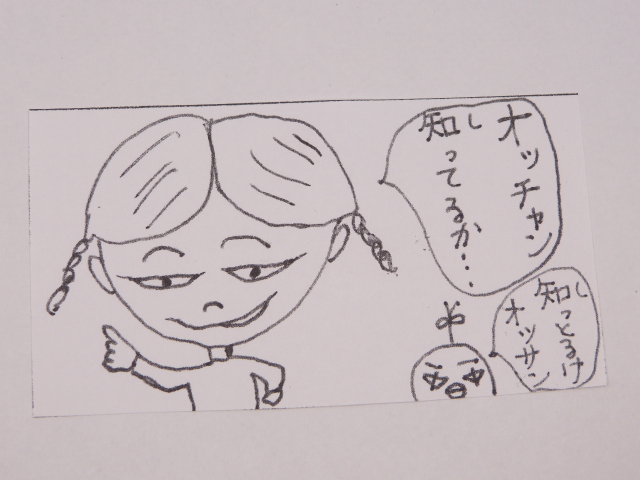 オッチャン
知ってるか・・・
知っとるけ
オッサン